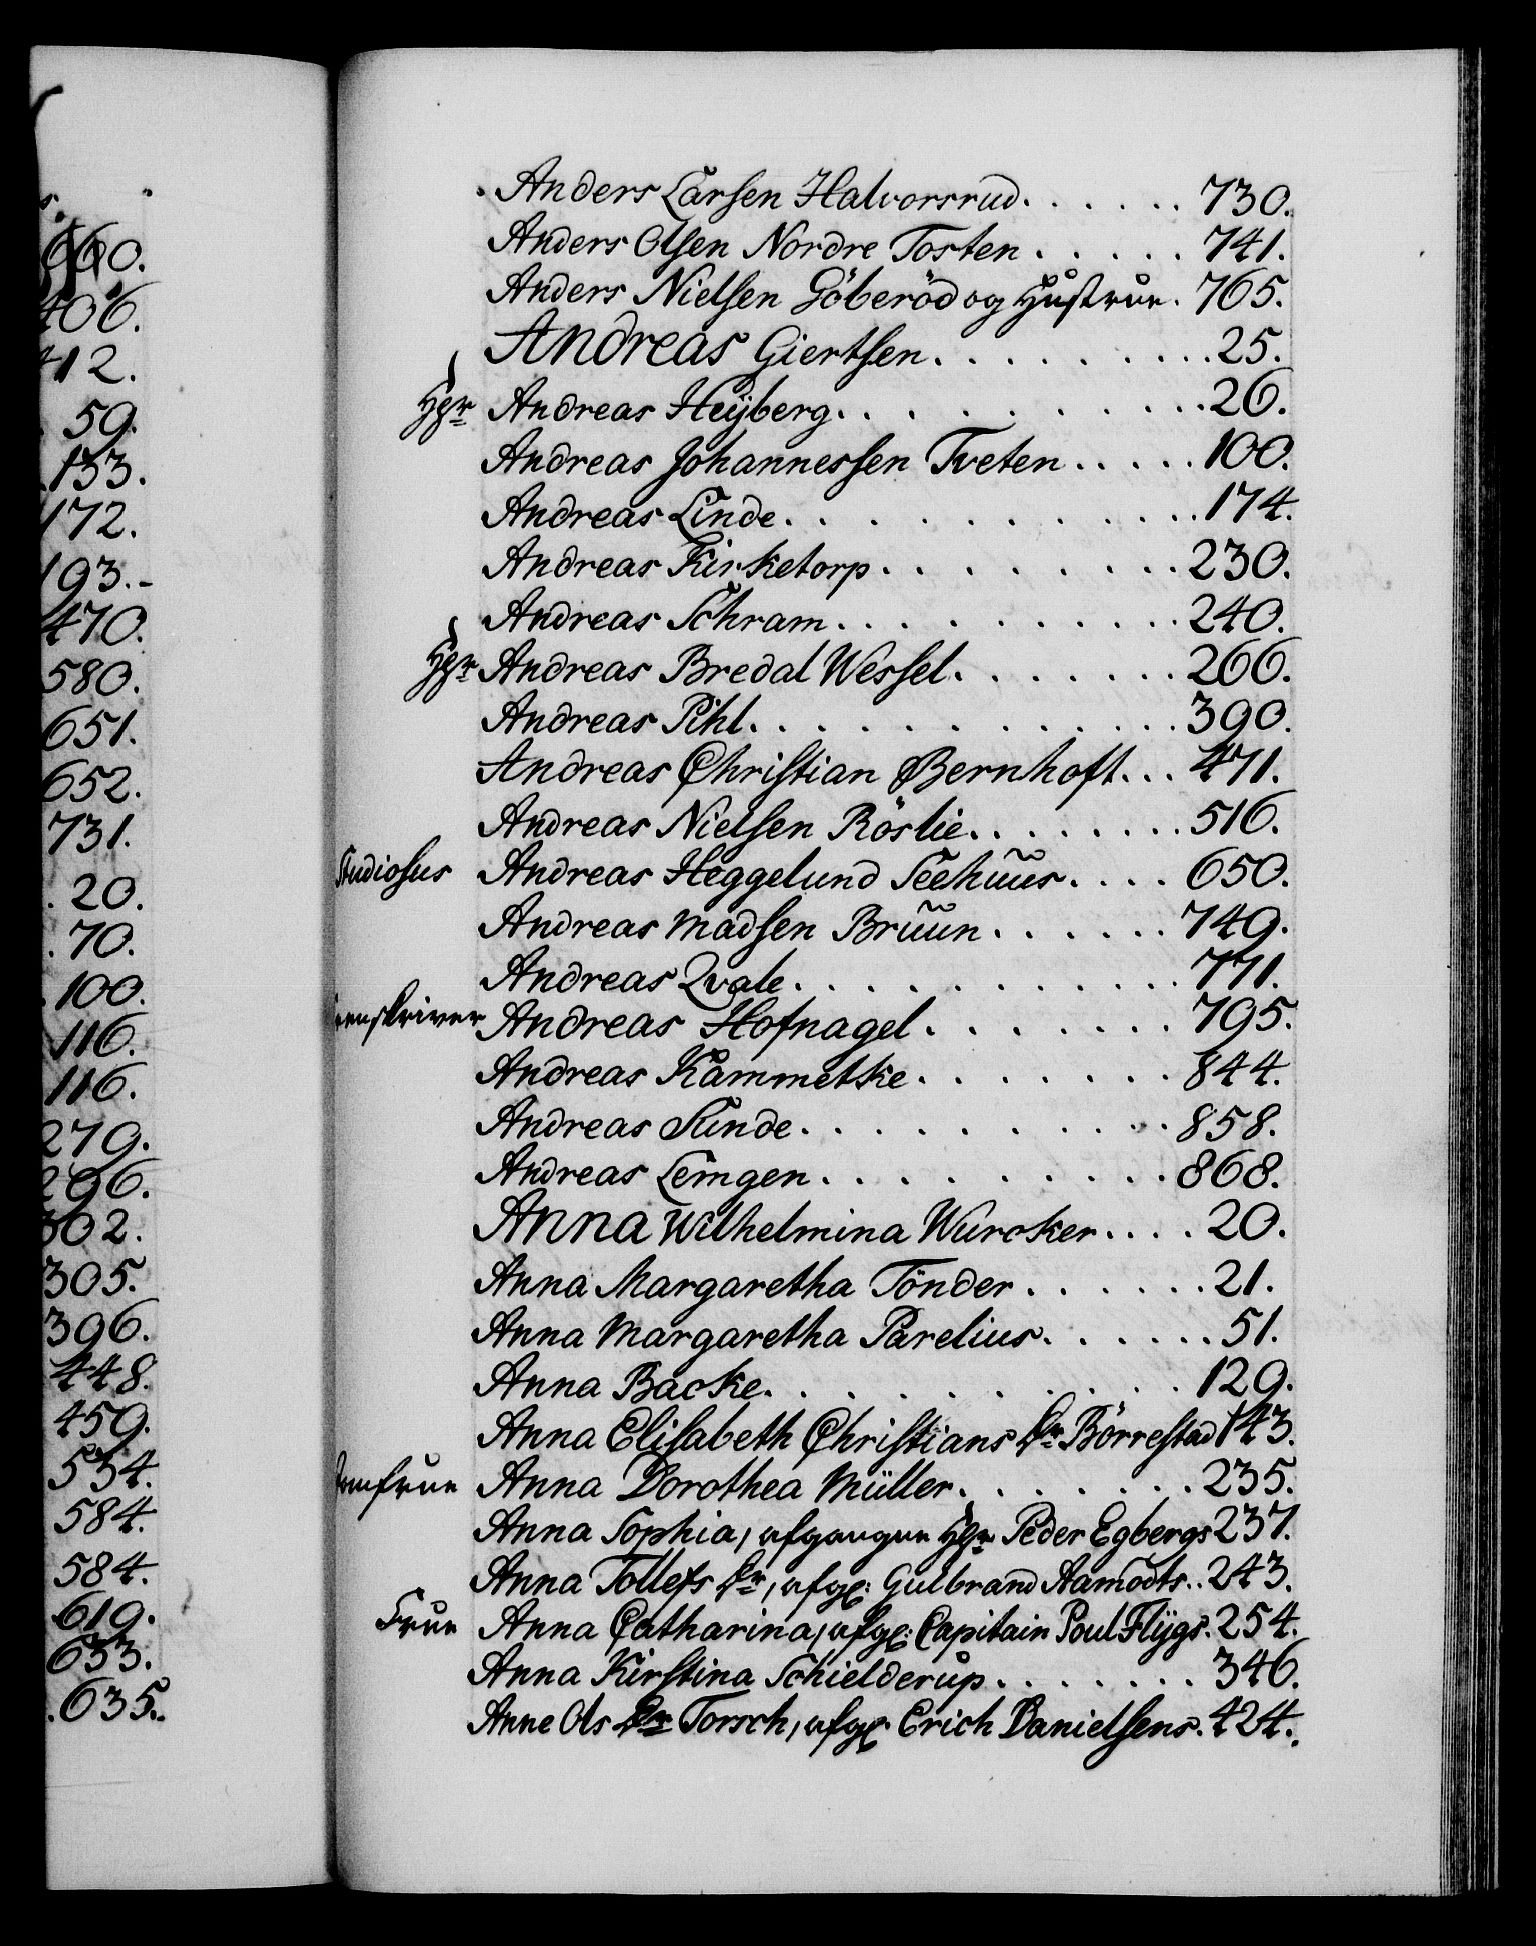 660.
406.
412.
59.
133.
172.
193.-
470.
580.
651.
652.
731.
20.
70.
100.
116.
116.
279.
296.
302.
305.
396.
448.
459.
534.
584.
584.
619.
633.
635.
Anders Larsen Halvorsrud. . . . . . 730.
Anders Olsen Nordre Tosten . . . . . 741.
Anders Nielsen Göberöd og Hustrue. 765.
Andreas Giertsen. . . . . . . . . 25.
Hr Andreas Heÿberg. . . . . . . . . 26.
Andreas Johannessen Tveten . . . . . 100.
Andreas Linde. . . . . . . . . 174.
Andreas Kirketorp. . . . . . . . 230.
Andreas Schram . . . . . . . . . 240.
Hr Andreas Bredal Wessel. . . . . . 266.
Andreas Pihl. . . . . . . . . . 390.
Andreas Christian Bernhoft. . . 471.
Andreas Nielsen Röslie. . . . . . . 516.
Studiosus Andreas Heggelund Seehuus. . . . 650.
Andreas Madsen Bruun . . . . . . 749.
Andreas Qvale. . . . . . . . . 771.
Andreas Hofnagel . . . . . . . 795.
Andreas Kammetske . . . . . . . 844.
Andreas Sunde. . . . . . . . . 858.
Andreas Lemgen . . . . . . . . 868.
Anna Wilhelmina Wurcker. . . . 20.
Anna Margaretha Tönder . . . . . . 21.
Anna Margaretha Parelius. . . . . . 51.
Anna Backe. . . . . . . . . 129.
Anna Elisabeth Christians Dr Börrestad 143.
Jomfrue Anna Dorothea Müller. . . . . . . 235.
Anna Sophia, afgangne Hr Peder Egbergs 237.
Anna Tollefs Dr, afg: Gulbrand Aamodts. . 243.
Frue Anna Catharina, afg: Capitain Poul Flÿgs. 254.
Anna Kirstina Schielderup. . . . . . . 346.
Anne Ols Dr Torsch, afg: Erich Danielsens. 424.